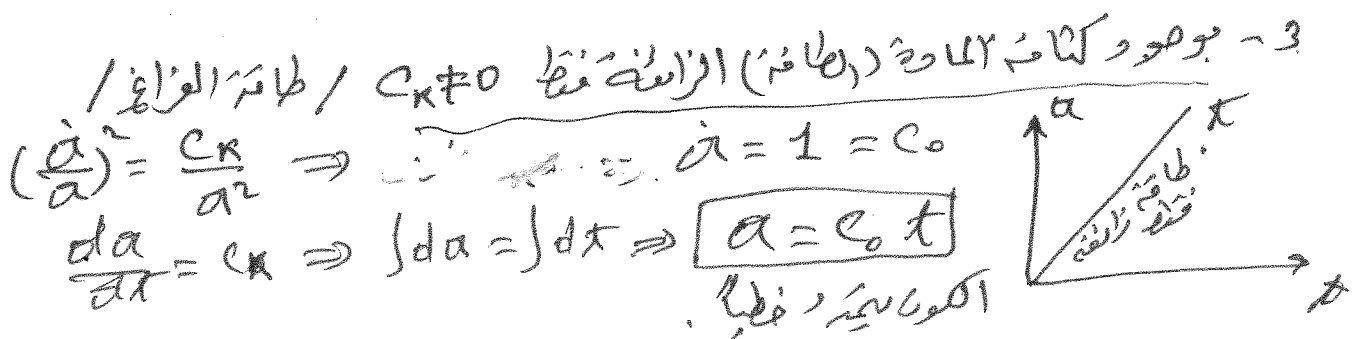 3 - بوجود كثافة المادة (الطاقة) الزائفة فقط Cκ ≠ 0 / طاقة الفراغ /
(ȧ/a)² = Cκ/a² ⇒ ȧ = 1 = C₀
da/dt = Cκ ⇒ ∫da = ∫dt ⇒ a = C₀ t
الكون يتمدد خطياً .
a
t
طاقة زائفة
فقط
t